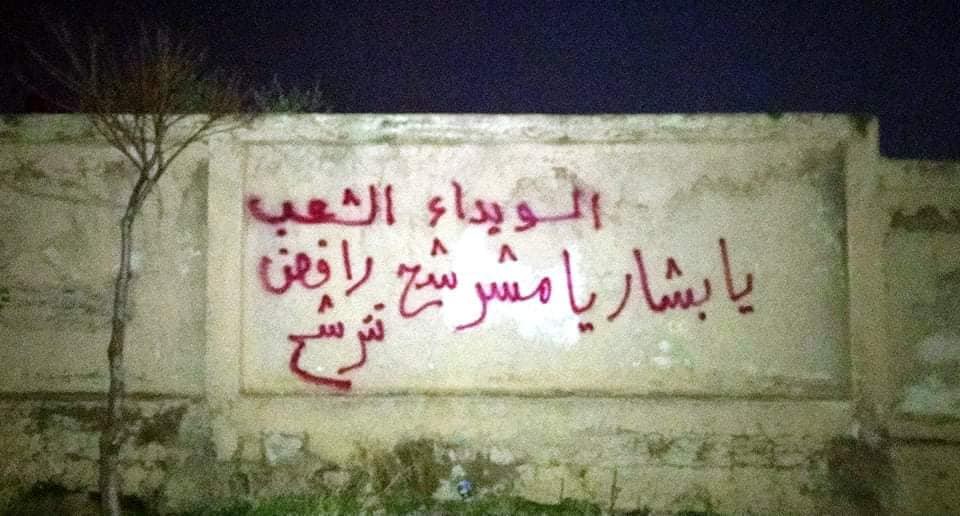 السويداء الشعب
يا بشار يا مشرشح رافض
ترشح